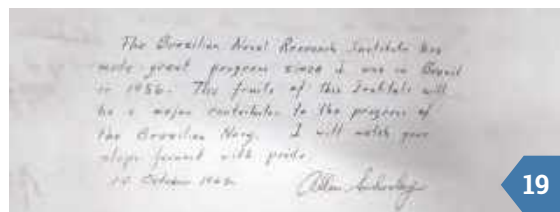 The Brazilian Naval Research Institute has
made great progress since I was in Brazil
in 1956. The fruits of this Institute will
be a major contributor to the progress of
the Brazilian Navy. I will watch your
steps forward with pride.
October
19